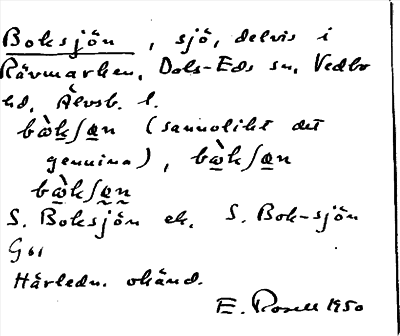 Boksjön, sjö, delvis i
Rävmarken, Dals-Eds sn, Vedbo
hd, Älvsb. l.
bὼkʃən (sannolikt det
genuina), bὼkʃən
bὼkʃən
S. Boksjön ek. S. Bok-sjön
Härledn. okänd.
E. Rosell 1950